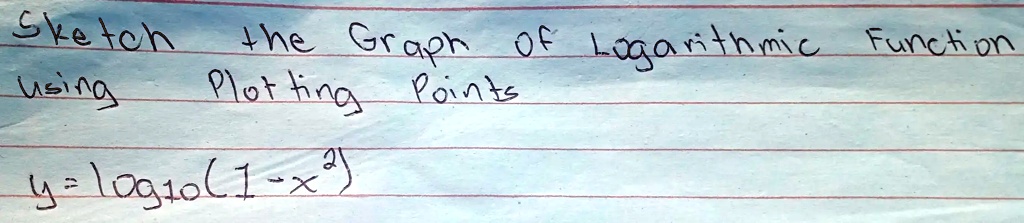 Sketch the Graph of Logarithmic Function
using Plotting Points
y = log₁₀(1-x²)